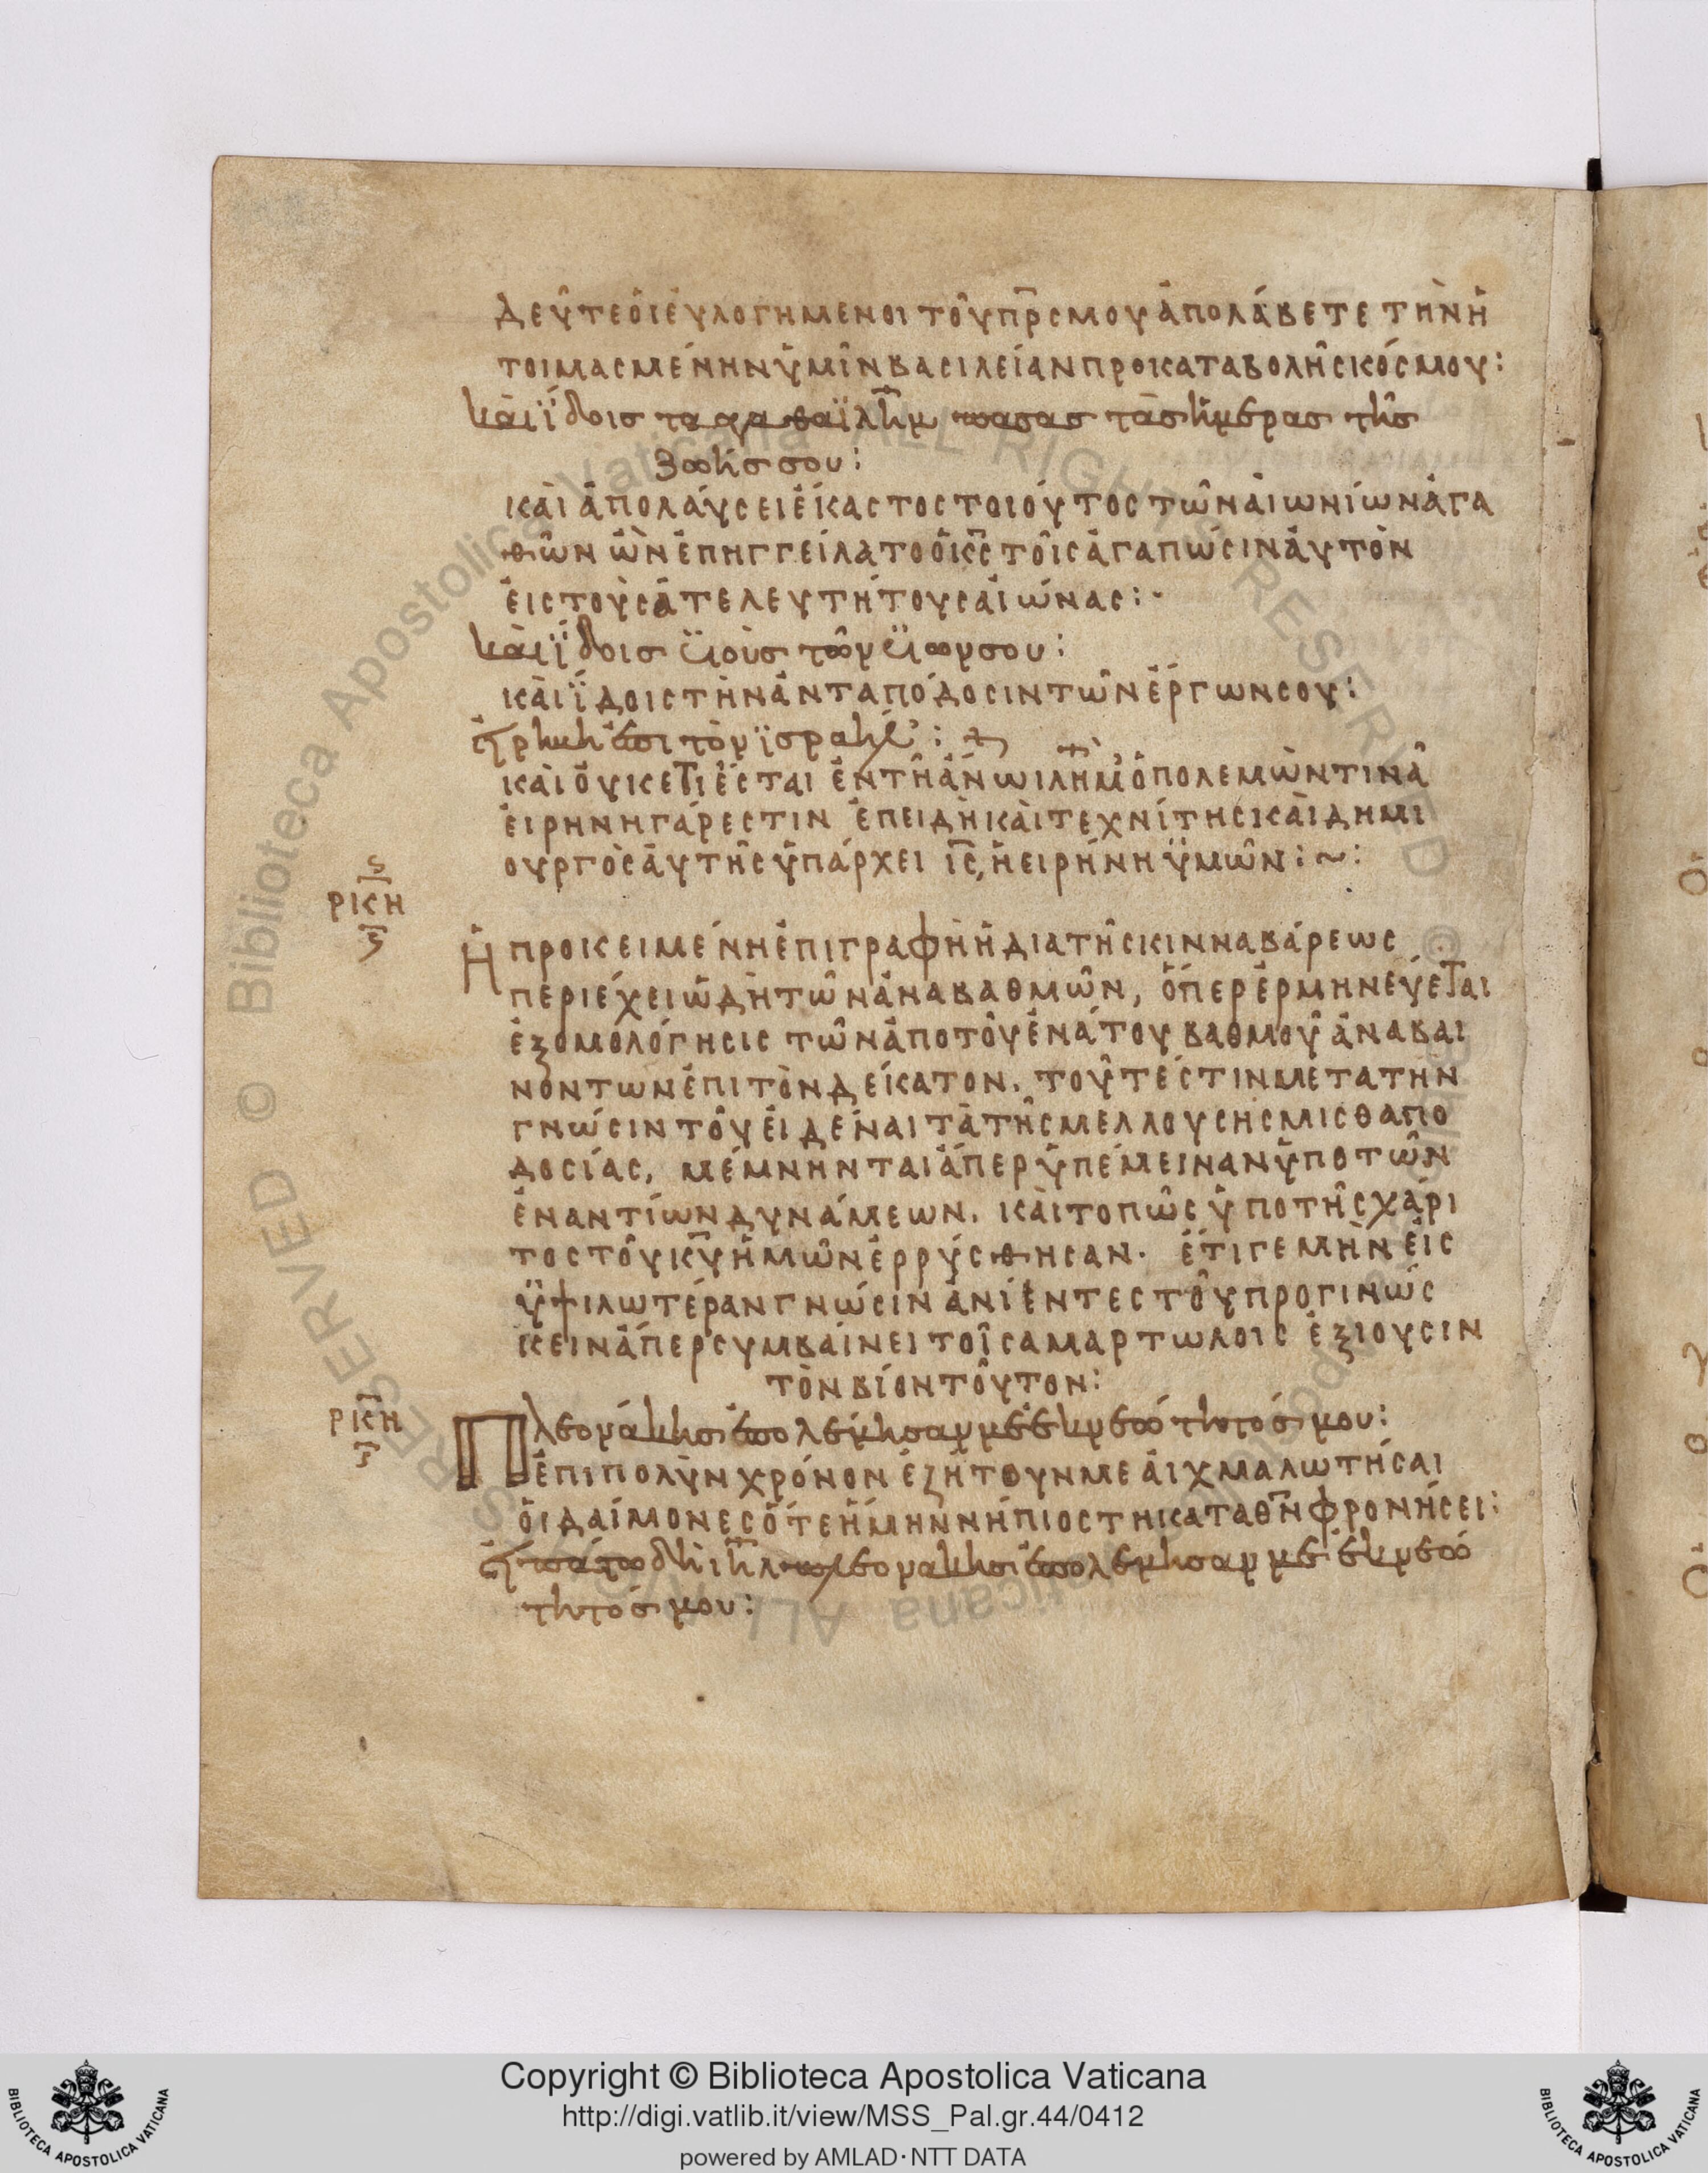 δεῦτε ὁι ἐυλογημενοι τοῦ π̅ρ̅σ̅ μου ἀπολάβετε τὴν ἡ
τοιμασμένην ὑμῖν βασιλείαν προ καταβολῆς κόσμου:
καὶ ἴδοις τα αγαθα ϊλ̅η̅μ πασας τὰς ἡμερας τῆς
ζωῆς σου:
καὶ ἀπολάυσει ἑίκαστος τοιούτος τῶν ἀιωνίων ἀγα
θῶν ὧν ἐπηγγείλατο ὁ κ̅ς̅ τοῖς ἀγαπώσιν ἀυτὸν
ἐις τοὺς ἀτελευτήτους ἀιώνας:·
καὶ ἴδοις ϋιοὺς τῶν ϋιων σου:
καὶ ἴδοις τὴν ἀνταπόδοσιν τῶν ἔργων σου:
ἐιρήνη ἐπι τὸν ϊσραήλ:
καὶ ὀυκετι ἔσται ἐν τῆ ἄνω ιλ̅η̅μ ὁ πολεμὼν τινᾶ
ἐιρηνη γάρ εστιν ἐπειδὴ καὶ τεχνίτης καὶ δημι
ουργὸς ἀυτῆς ὑπάρχει ι̅ς̅, ἡ ειρήνη ϋμῶν: ~:
ς
ρκη
ξ
Ἡ προκειμένη ἐπιγραφὴ ἡ δια τῆς κινναβάρεως
περιέχει ὠδὴ τῶν ἀναβαθμῶν, ὅπερ ἑρμηνεύεται
ἐξομολόγησις τῶν ἀπο τοῦ ἐνάτου βαθμοῦ ἀναβαι
νοντων ἐπι τὸν δείκατον. τοῦτέστιν μετα τὴν
γνώσιν τοῦ ἐιδέναι τὰ τῆς μελλουσης μισθαπο
δοσίας, μέμνηνται ἅπερ ὑπέμειναν ὑπο τῶν
ἐναντίων δυνάμεων. καὶ το πῶς ὑπο τῆς χάρι
τος τοῦ κ̅υ̅ ἡμῶν ἐρρύσθησαν. ἔτι γε μὴν ἐις
ὑψιλωτέραν γνώσιν ἀνιέντες τοῦ προγινώς
κειν ἅπερ συμβαίνει τοῖς αμαρτωλοις ἐξιουσιν
τὸν βίον τοῦτον:
ρκη
Πλεονάκις ἐπολέμησαν με ἐκ νεότητός μου:
ἐπι πολὺν χρόνον ἐζήτουν με ἀιχμαλωτήσαι
ὁι δαίμονες ὅτε ἤμην νήπιος τη κατα θ̅ν φρονήσει:
ἐιπάτω δὴ ι̅η̅λ πλεονακις ἐπολεμησαν με ἐκ νεό
τητός μου:
Copyright © Biblioteca Apostolica Vaticana
http://digi.vatlib.it/view/MSS_Pal.gr.44/0412
powered by AMLAD·NTT DATA
BIBLIOTECA APOSTOLICA VATICANA
BIBLIOTECA APOSTOLICA VATICANA